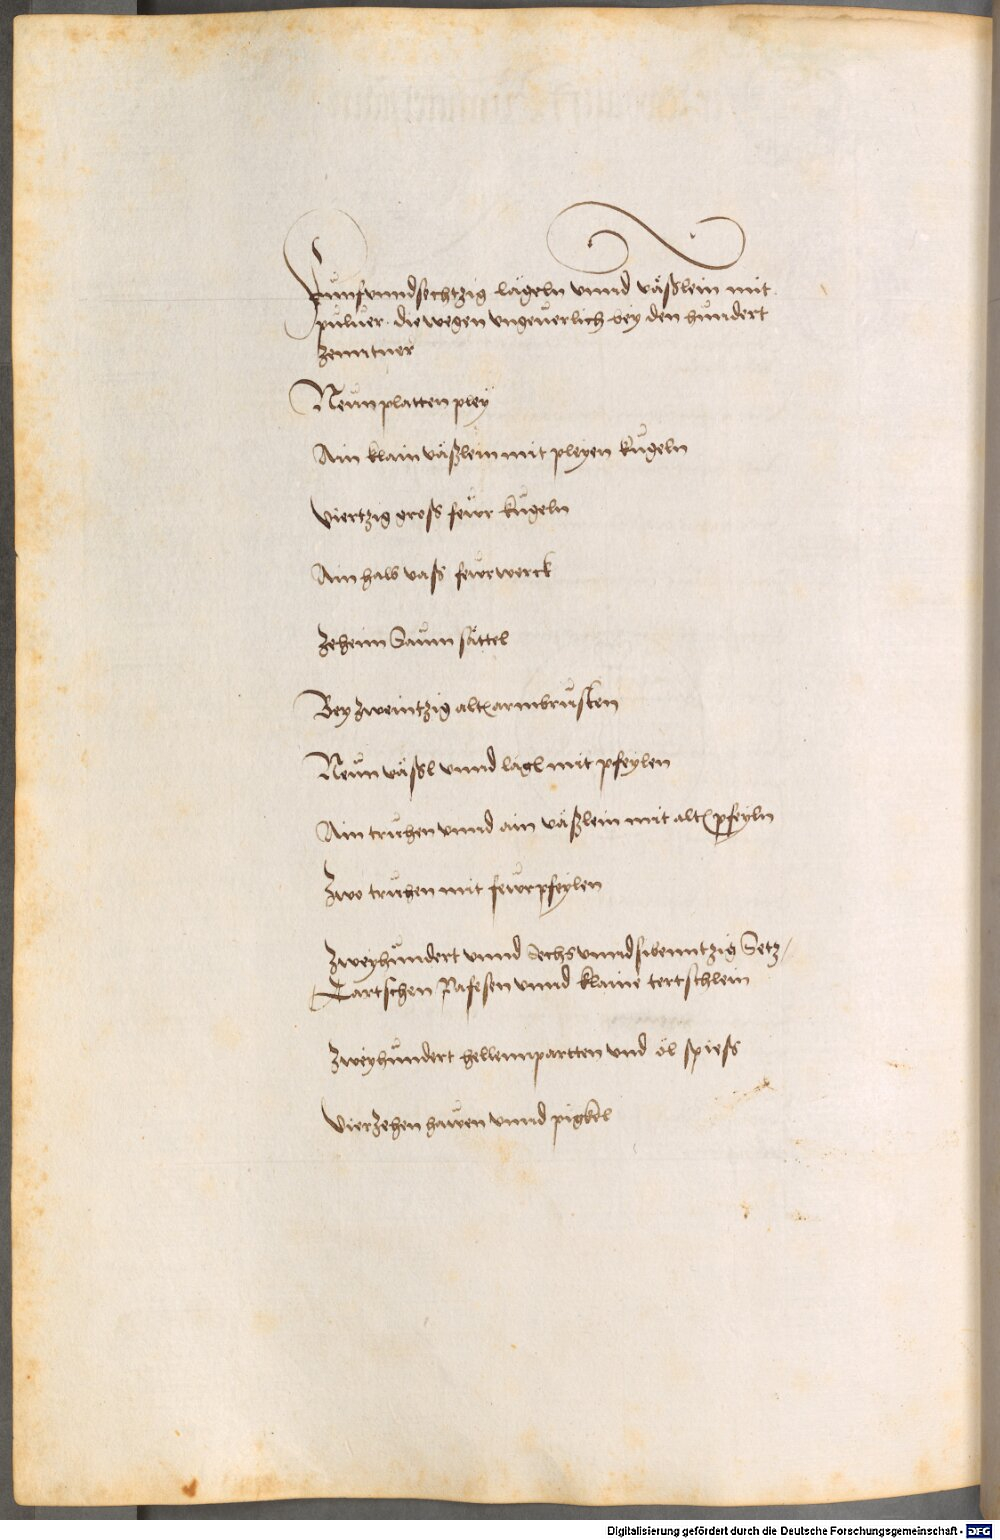 Funfunndsechtzig lägeln unnd väßlein mit
puluer. die wegen ungeuerlich bey den hundert
zenntner
Neun platten pley
Ain klain väßlein mit pleyen kugeln
Viertzig gross fewr kugeln
Ain halb vass fewrwerck
Zehenn Saum sättel
Bey zweintzig alt armbrusten
Neun väßl unnd lägl mit pfeylen
Ain truhen unnd ain väßlein mit alt pfeyln
Zwo truhen mit fewrpfeylen
Zweyhundert unnd Sechsunndsibenntzig Setz/
Tartschen Pafesen unnd klaine tertschlein
Zweyhundert hellennpartten und öl spiess
Vierzehen hawen unnd pigkel
Digitalisierung gefördert durch die Deutsche Forschungsgemeinschaft - DFG